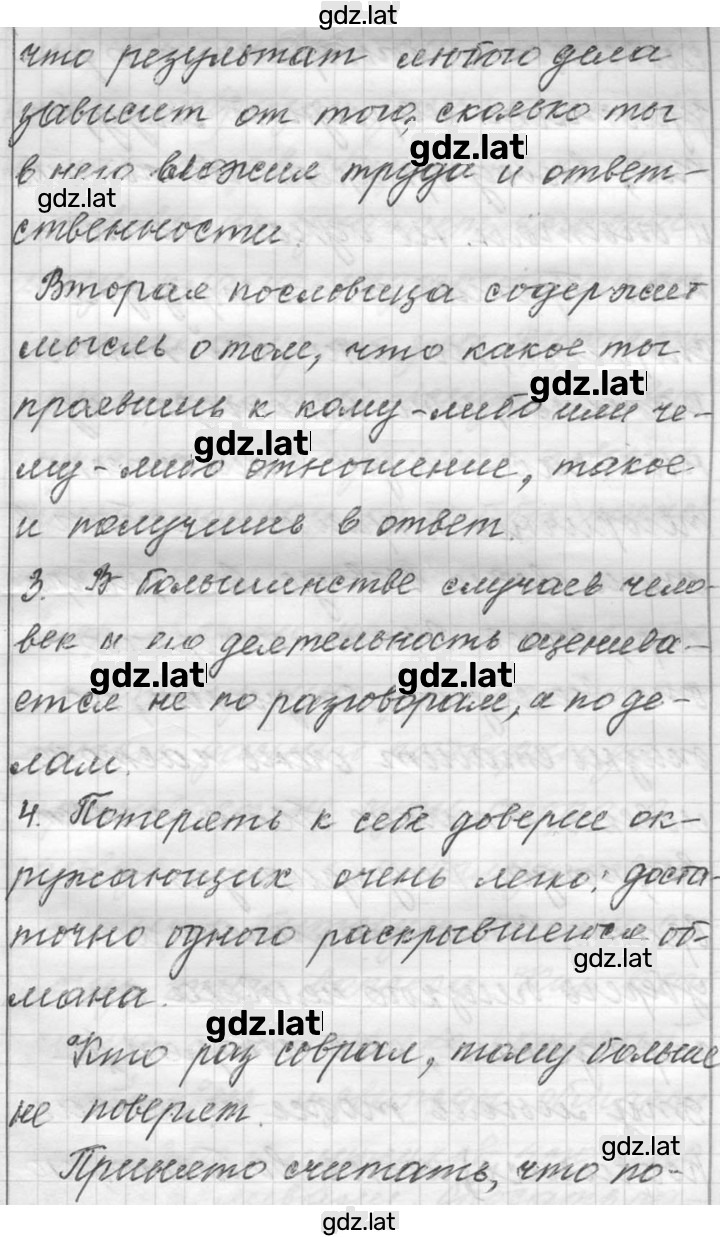 gdz.lat
что результат любого дела
зависит от того, сколько ты
gdz.lat
в него вложил труда и ответ-
gdz.lat
ственности.
Вторая пословица содержит
мысль о том, что какое ты
gdz.lat
проявишь к кому-либо или че-
gdz.lat
му-либо отношение, такое
и получишь в ответ.
3. В большинстве случаев чело-
век и его деятельность оценива-
gdz.lat gdz.lat
ется не по разговорам, а по де-
лам.
4. Потерять к себе доверие ок-
ружающих очень легко: доста-
точно одного раскрывшегося об-
gdz.lat
мана.
gdz.lat
Кто раз соврал, тому больше
не поверят.
gdz.lat
Принято считать, что по-
gdz.lat